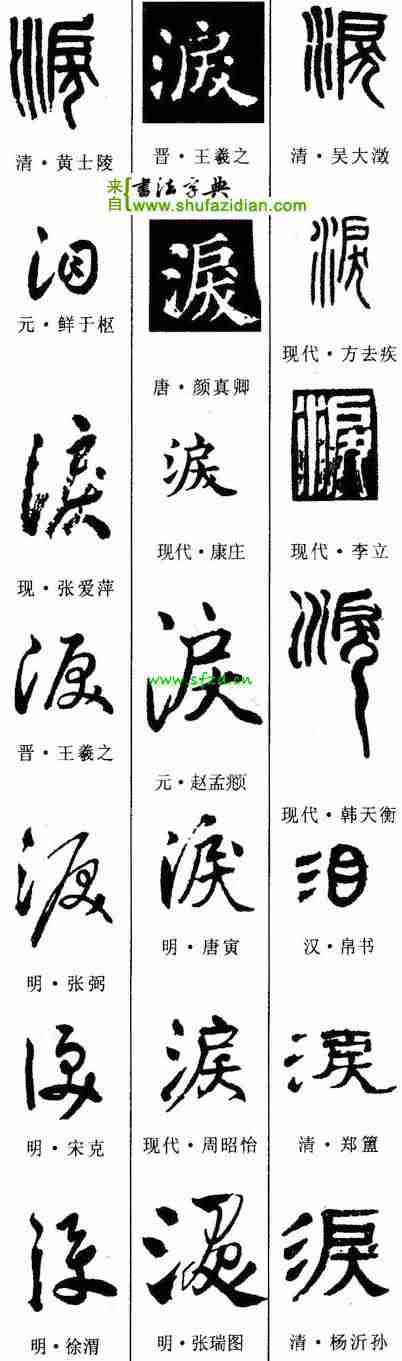 淚
清·黄士陵
泪
元·鲜于枢
淚
现·张爱萍
淚
晋·王羲之
淚
明·张弼
淚
明·宋克
淚
明·徐渭
淚
晋·王羲之
来自 書法字典
www.shufazidian.com
淚
唐·颜真卿
淚
现代·康庄
淚
www.sfzd.cn
元·赵孟頫
淚
明·唐寅
淚
现代·周昭怡
淚
明·张瑞图
淚
清·吴大澂
淚
现代·方去疾
淚
现代·李立
淚
现代·韩天衡
泪
汉·帛书
淚
清·郑簠
淚
清·杨沂孙